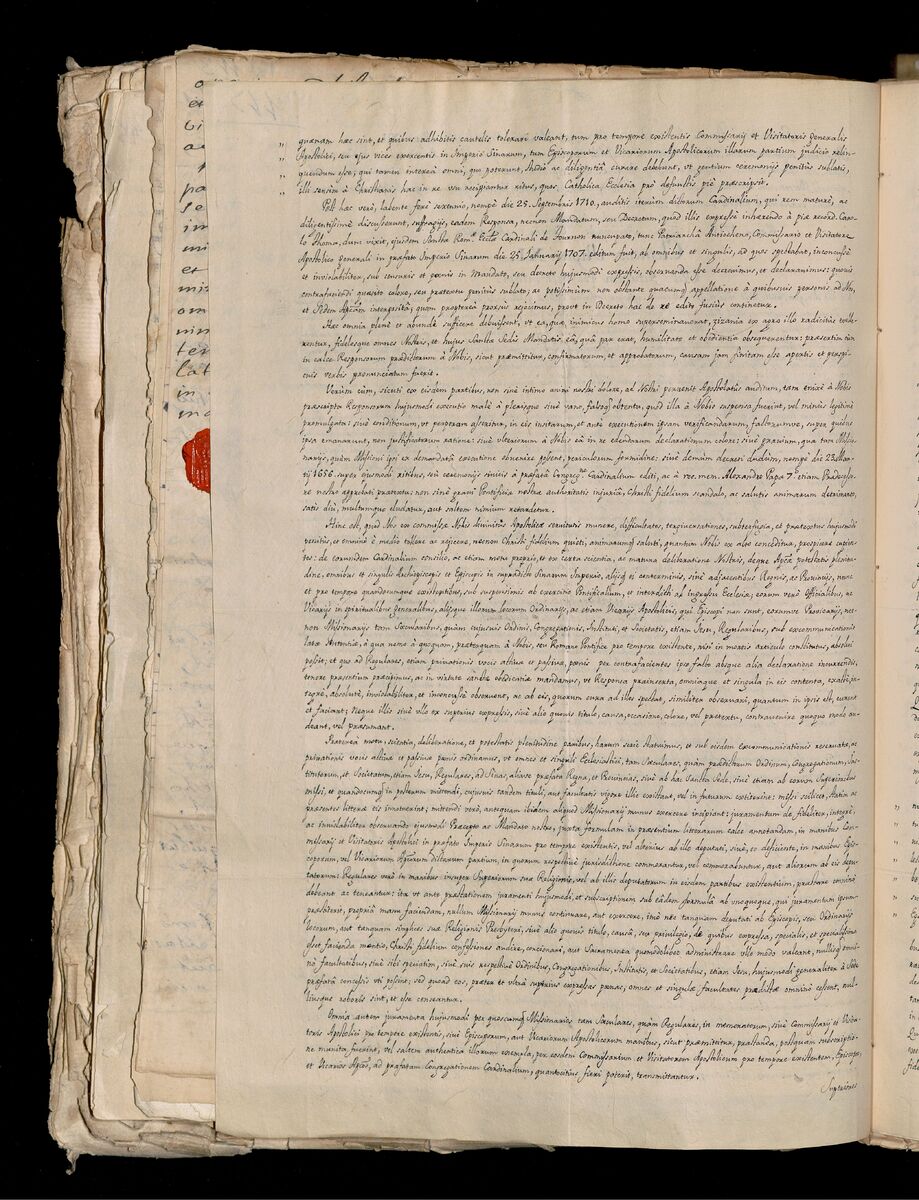 quænam hæ sint, et quibus adhibitis cautelis tolerari valeant, tum pro tempore existentis Commissarij et Visitatoris Generalis
Apostolici, seu ejus vices exercentis in Imperio Sinarum, tum Episcoporum et Vicariorum Apostolicorum illarum partium judicio relin-
quendum esse; qui tamen interea omni, quo poterunt, studio ac diligentiâ curare debebunt, ut gentilium ceremonijs penitus sublatis,
illi sensim à Christianis hac in re usu recipiantur ritus, quos Catholica Ecclesia pro defunctis piè præscripsit.
Post hæc verò, labente ferè sexennio, nempè die 25. Septembris 1710, auditis iterùm dictorum Cardinalium, qui rem maturè, ac
diligentissimè discusserunt, suffragijs, eadem Responsa, necnon Mandatum, seu Decretum, quod illis expressè inhærendo à piæ record. Caro-
lo Thoma, dum vixit, ejusdem Sanctæ Rom. Eccl. Cardinali de Tournon nuncupato, tunc Patriarchâ Antiocheno, Commissario et Visitatore
Apostolico Generali in præfato Imperio Sinarum die 25. Januarij 1707. editum fuit, ab omnibus et singulis, ad quos spectabat, inconcussè
et inviolabiliter, sub censuris et pœnis in Mandato, seu decreto hujusmodi expressis, observanda esse decrevimus, et declaravimus: quovis
contrafaciendi quæsito colore, seu prætextu penitùs sublato; ac potissimùm non obstante quacumq appellatione à quibusvis personis ad Nos,
et Sedem Apcam interpositâ, quam proptereà prorsùs rejecimus, prout in Decreto hac de re edito fusiùs continetur.
Hæc omnia plenè et abundè sufficere debuissent, ut ea, quæ inimicus homo superseminaverat, zizania ex agro illo radicitùs tolle-
rentur, fidelesque omnes Nostris, et hujus Sanctæ Sedis Mandatis eâ, quâ par erat, humilitate et obedientiâ obsequerentur: præsertìm cùm
in calce Responsorum prædictorum à Nobis, sicut præmittitur, confirmatorum, et approbatorum, causam jam finitam esse apertis et perspi-
cuis verbis pronunciatum fuerit.
Verùm cùm, sicuti ex eisdem partibus, non sinè intimo animi nostri dolore, ad Nostri pervenit Apostolatûs auditum, tam enixè à Nobis
præscripta Responsorum hujusmodi executio malè à plerisque sivè vano, falsoq obtentu, quod illa à Nobis suspensa fuerint, vel minùs legitimè
promulgata: sivè conditionum, ut perperam asseritur, in eis insitarum, et antè executionem ipsam verificandarum, factorumve, super quibus
ipsa emanarunt, non justificatorum ratione: sivè ulteriorum à Nobis eâ in re edendarum declarationum colore: sivè gravium, quæ tam Missio-
narijs, quàm Missioni ipsi ex demandatâ executione obvenire possent, periculorum formidine: sivè demùm decreti dudum, nempè die 23 Mar-
tij 1656. super ejusmodi ritibus, seu ceremonijs sinicis à præfatâ Congregne Cardinalium editi, ac à rec. mem. Alexandro Papa 7.o etiam Prædecesso-
re nostro approbati prætextu: non sinè gravi Pontificiæ nostræ authoritatis injuriâ, Christi fidelium scandalo, ac salutis animarum detrimento,
satis diu, multumque eludatur, aut saltem nimium retardetur.
Hinc est, quod Nos ex commissæ Nobis divinitùs Apostolicæ servitutis munere, difficultates, tergiversationes, subterfugia, et prætextus hujusmodi
penitùs, et omninò è medio tollere ac rejicere, necnon Christi fidelium quieti, animarumq saluti, quantùm Nobis ex alto conceditur, prospicere cupien-
tes: de eorundem Cardinalium consilio, ac etiam motu proprio, et ex certa scientiâ, ac matura deliberatione Nostris, deque Apcæ potestatis plenitu-
dine, omnibus et singulis Archiepiscopis et Episcopis in supradicto Sinarum Imperio, alijsq ei conterminis, sivè adjacentibus Regnis, ac Provincijs, nunc
et pro tempore quandocunque existentibus, sub suspensionis ab exercitio Pontificalium, et interdicti ab ingressu Ecclesiæ, eorum verò Officialibus, ac
Vicarijs in spiritualibus Generalibus, alijsque illorum locorum Ordinarijs, ac etiam Vicarijs Apostolicis, qui Episcopi non sunt, eorumve Provicarijs, nec-
non Missionarijs tam Sæcularibus, quàm cujusvis Ordinis, Congregationis, Instituti, et Societatis, etiam Jesu, Regularibus, sub excommunicationis
latæ sententiæ, à qua nemo à quoquam, præterquam à Nobis, seu Romano Pontifice pro tempore existente, nisi in mortis articulo constitutus, absolvi
possit; et quo ad Regulares, etiam privationis vocis activæ et passivæ, pœnis per contrafacientes ipso facto absque alia declaratione incurrendis,
tenore præsentium præcipimus, ac in virtute sanctæ obedientiæ mandamus, ut Responsa præinserta, omniaque et singula in eis contenta, exactè, in-
tegrè, absolutè, inviolabiliter, et inconcussè observent, ac ab eis, quorum cura ad illos spectat, similiter observari, quantùm in ipsis est, curent
et faciant; Neque illis sivè ullo ex superiùs expressis, sivè alio quovis titulo, causa, occasione, colore, vel prætextu, contravenire quoquo modo au-
deant, vel præsumant.
Præterea motu, scientiâ, deliberatione, et potestatis plenitudine paribus, harum serie statuimus, et sub eisdem excommunicationis reservatæ, ac
privationis vocis activæ et passivæ pœnis ordinamus, ut omnes et singuli Ecclesiastici, tam Sæculares, quàm prædictorum Ordinum, Congregationum, Ins-
titutorum, et Societatum, etiam Jesu, Regulares, ad Sinas, aliave præfata Regna, et Provincias, sivè ab hac Sancta Sede, sivè etiam ab eorum Superioribus
missi, et quandocumq in posterum mittendi, cujusvis tandem tituli, aut facultatis vigore illic existant, vel in futurum extiterint: missi scilicet, statim ac
præsentes litteræ eis innotuerint; mittendi verò, antequam ibidem aliquod Missionarij munus exercere incipiant: juramentum de fideliter, integrè,
ac inviolabiliter observando ejusmodi Præcepto ac Mandato nostro, juxta formulam in præsentium litterarum calce annotandam, in manibus Com-
missarij et Visitatoris Apostolici in præfato Imperio Sinarum pro tempore existentis, vel alterius ab illo deputati, sivè, eo deficiente, in manibus Epis-
coporum, vel Vicariorum Apcorum dictarum partium, in quorum respectivè jurisdictione commorantur, vel commorabuntur, aut aliorum ab eis depu-
tatorum: Regulares verò in manibus insuper Superiorum suæ Religionis, vel ab illis deputatorum in eisdem partibus existentium, præstare omninò
debeant ac teneantur: ita ut ante præstationem juramenti hujusmodi, et subscriptionem sub eâdem formulâ ab unoquoque, qui juramentum ipsum
præstiterit, propriâ manu faciendam, nullum Missionarij munus continuare, aut exercere, imò nec tanquam deputati ab Episcopis, seu Ordinarijs
locorum, aut tanquam simplices suæ Religionis Presbyteri, sivè alio quovis titulo, causâ, seu privilegio, de quibus expressa, specialis, et specialissima
esset facienda mentio, Christi fidelium confessiones audire, concionari, aut Sacramenta quomodolibet administrare ullo modo valeant, nullisq omni-
nò facultatibus, sivè sibi speciatim, sivè suis respectivè Ordinibus, Congregationibus, Institutis, et Societatibus, etiam Jesu, hujusmodi generaliter à Sede
præfata concessis uti possint; sed quoad eos, præter et ultrà superiùs expressas pœnas, omnes et singulæ facultates prædictæ omninò cessent, nul-
liusque roboris sint, et esse censeantur.
Omnia autem juramenta hujusmodi per quoscumq Missionarios tam Sæculares, quàm Regulares, in memoratorum, sivè Commissarij et Visita-
toris Apostolici pro tempore existentis, sivè Episcoporum, aut Vicariorum Apostolicorum manibus, sicut præmittitur, præstanda, postquam subscriptio-
ne munita fuerint, vel saltem authentica illorum exempla, per eosdem Commissarium et Visitatorem Apostolicum pro tempore existentem, Episcopos,
et Vicarios Apcos, ad præfatam Congregationem Cardinalium, quantociùs fieri poterit, transmittantur.
Superiores